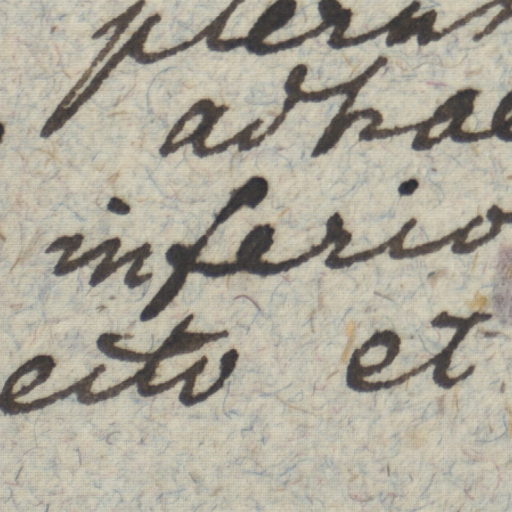 plerum
adhae
inferio
cito et